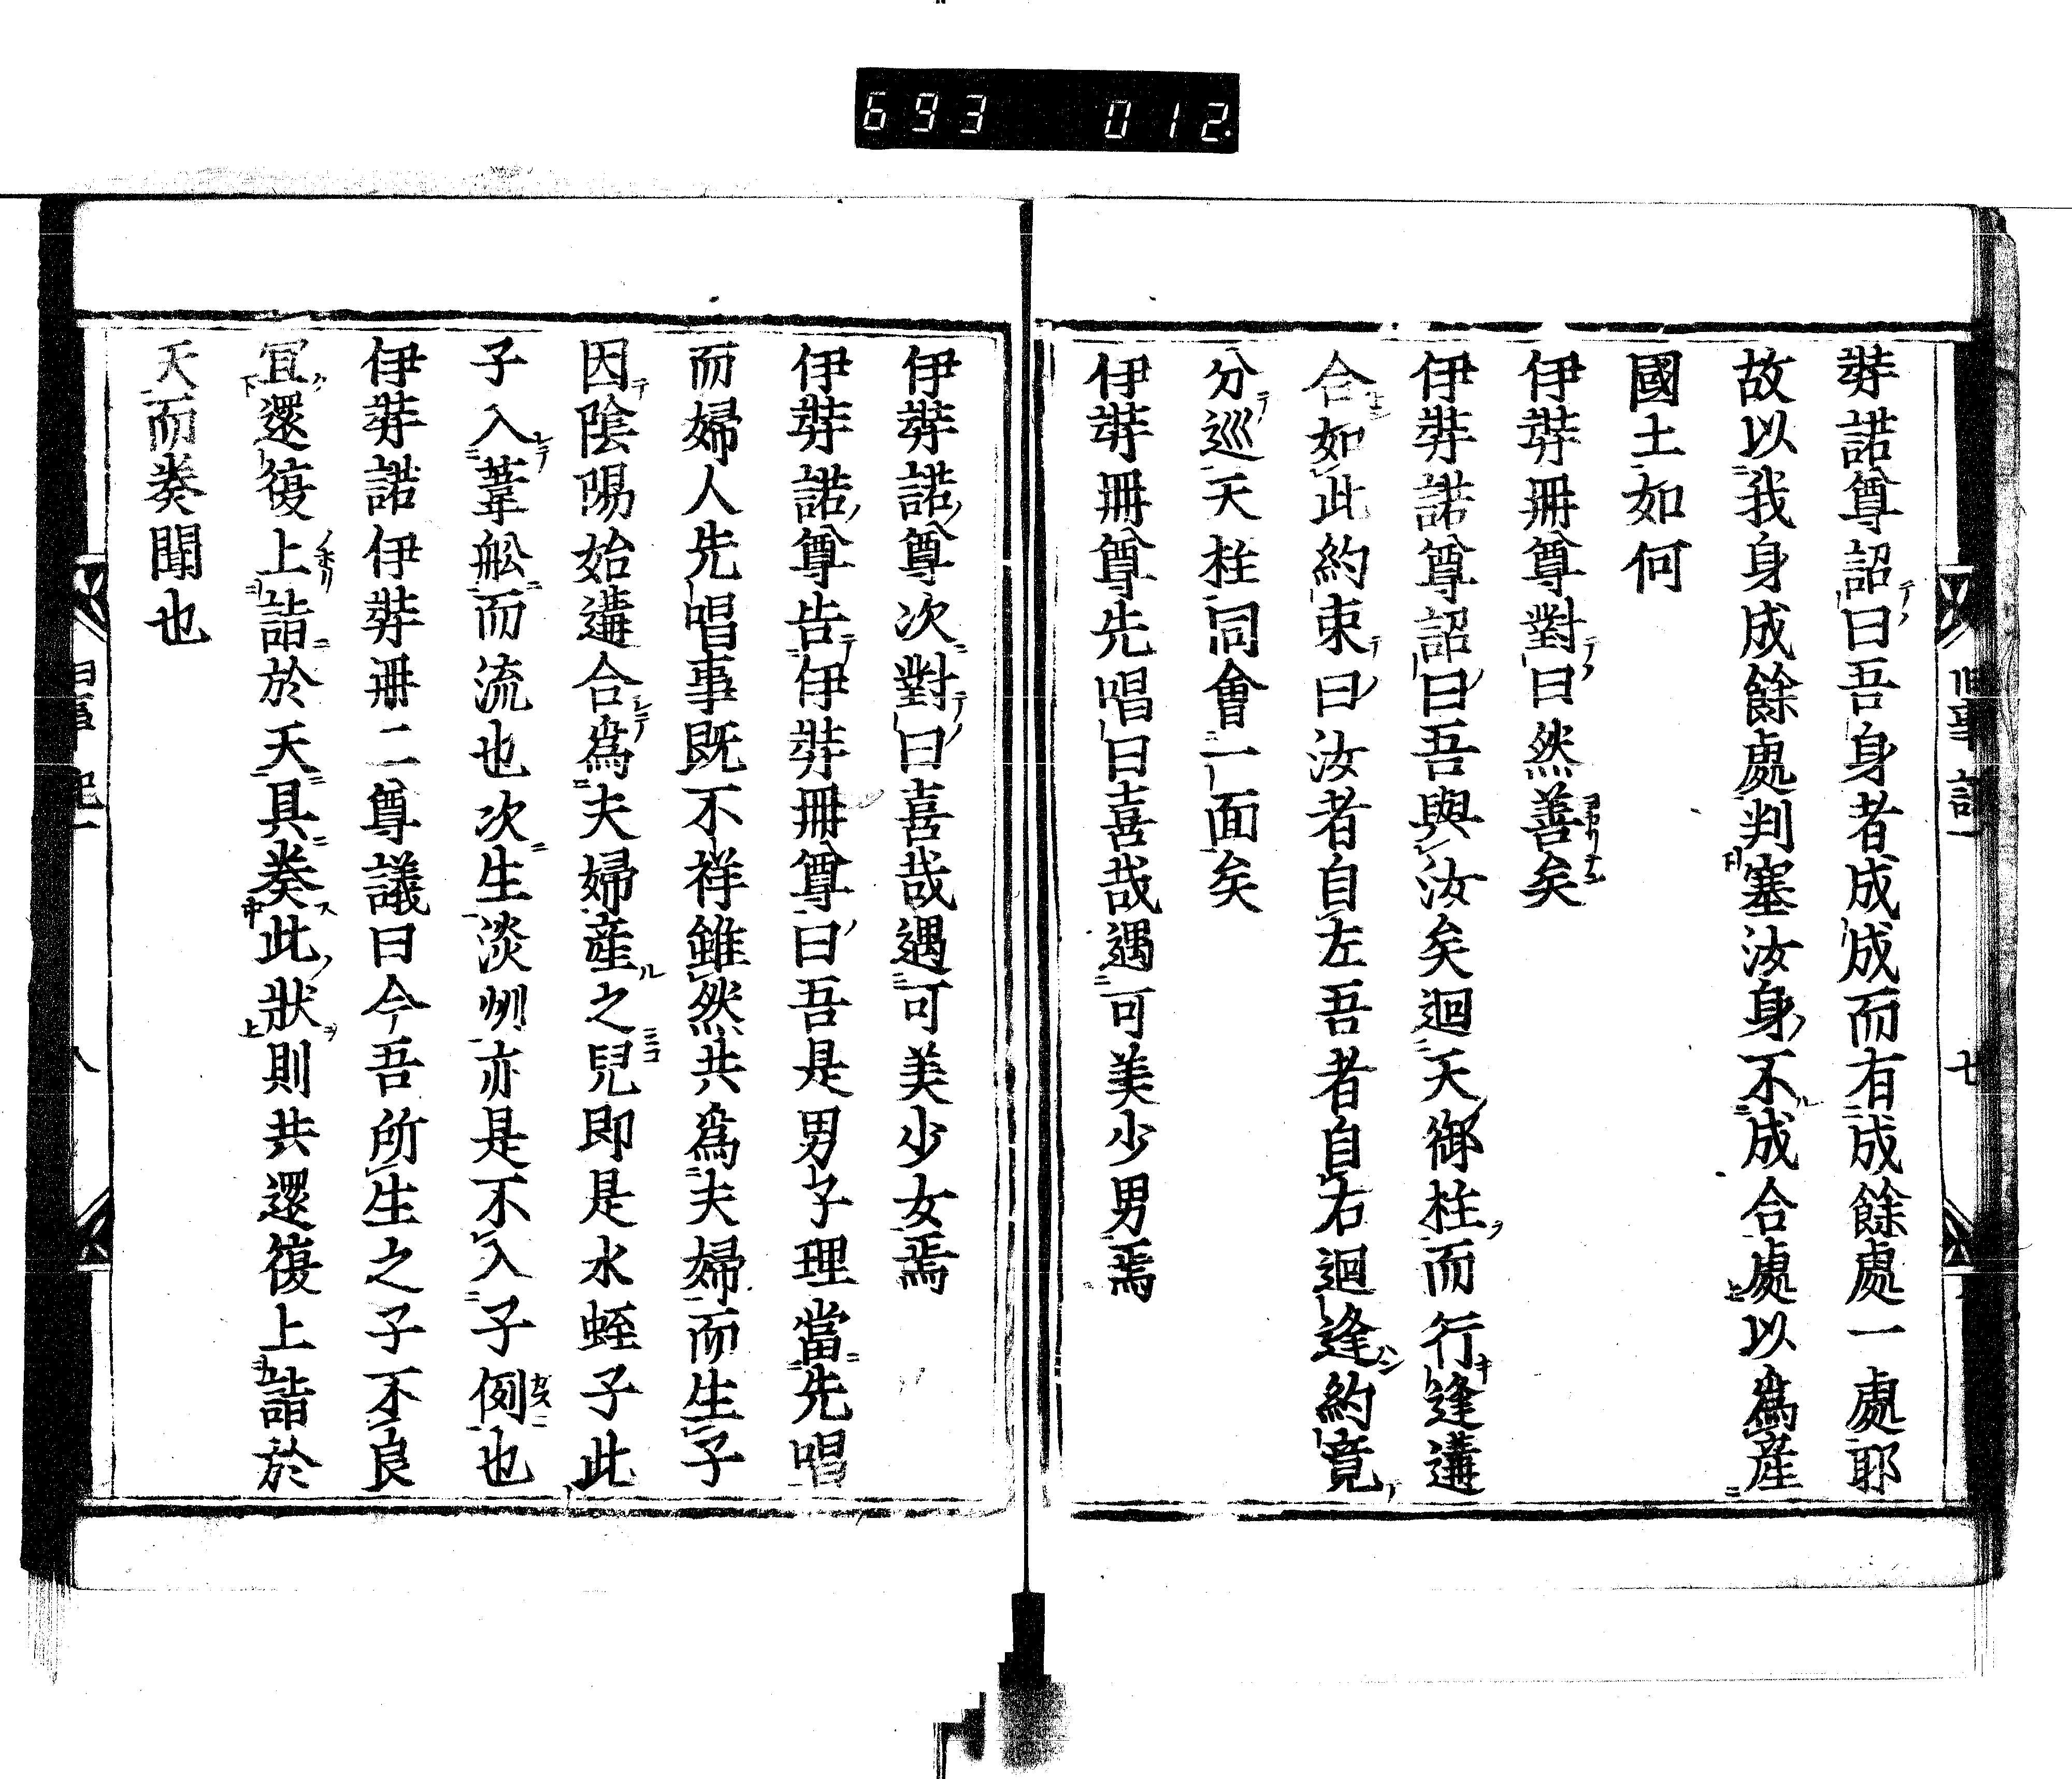 693 012
弉諾尊詔曰吾身者成成而有成餘處一處耶
故以我身成餘處判塞汝身不成合處以為產
國土如何
伊弉冊尊對曰然善矣
伊弉諾尊詔曰吾與汝矣迴天御柱而行逢遘
合如此約束曰汝者自左吾者自右迴逢約竟
分巡天柱同會一面矣
伊弉冊尊先唱曰喜哉遇可美少男焉
伊弉諾尊次對曰喜哉遇可美少女焉
伊弉諾尊告伊弉冊尊曰吾是男子理當先唱
而婦人先唱事既不祥雖然共為夫婦而生子
因陰陽始遘合為夫婦產之兒即是水蛭子此
子入葦舩而流也次生淡州亦是不入子例也
伊弉諾伊弉冊二尊議曰今吾所生之子不良
宜還復上詣於天具奏此狀則共還復上詣於
天而奏聞也